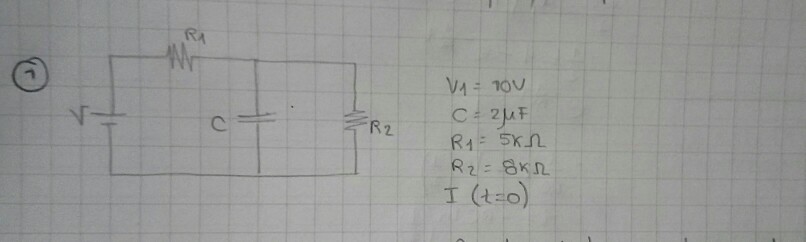 R1
1
V
C
R2
V1 = 10V
C = 2μF
R1 = 5KΩ
R2 = 8KΩ
I (t=0)